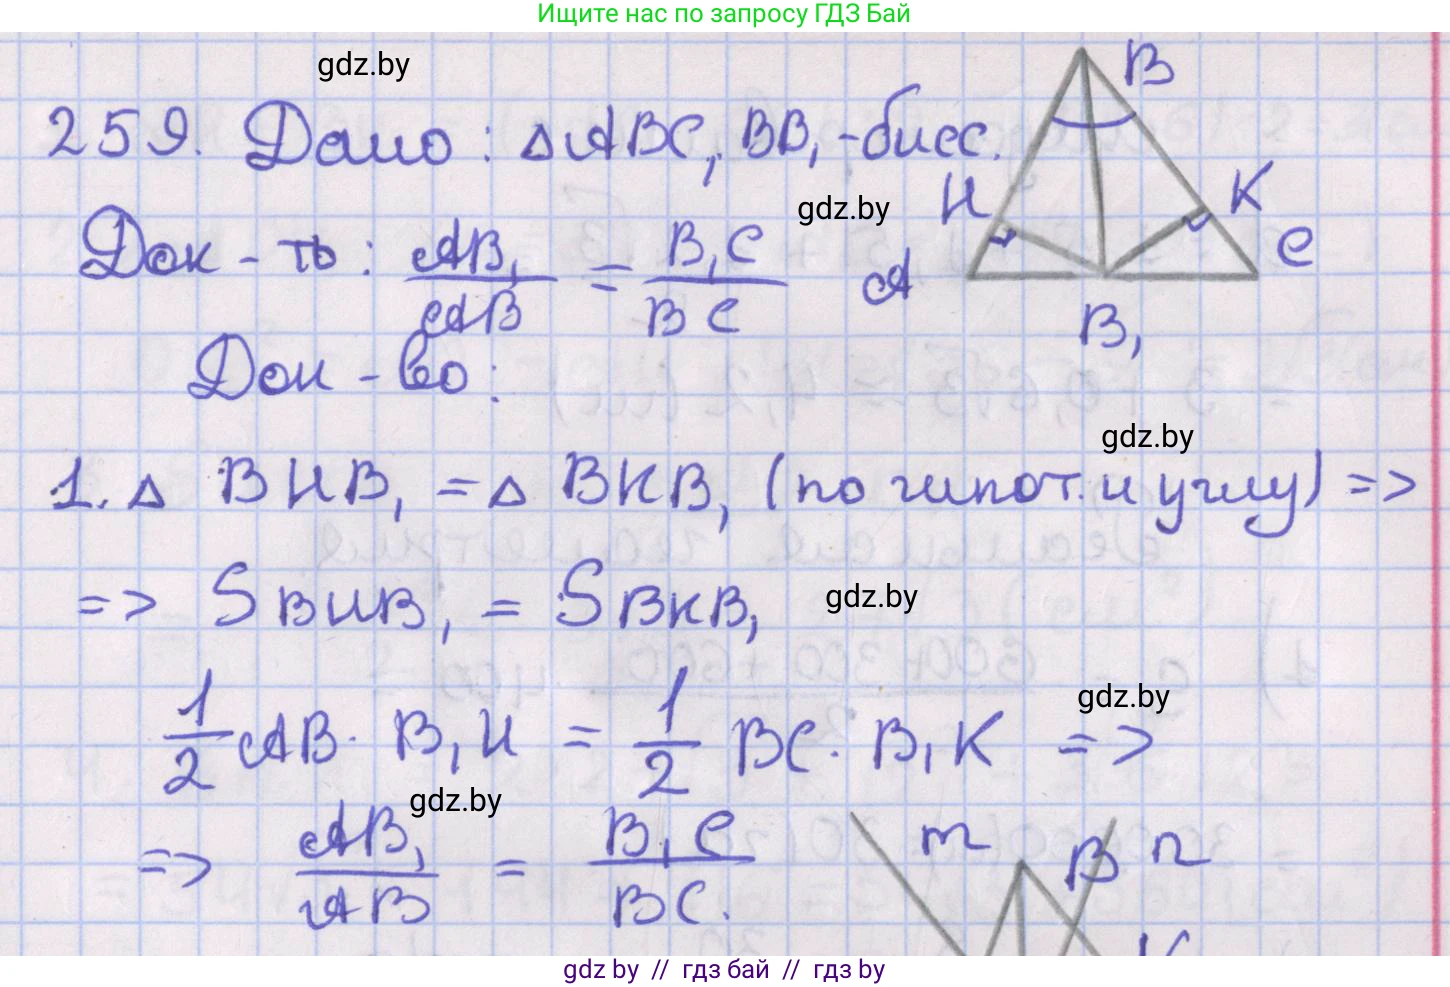 Ищите нас по запросу ГДЗ Бай
gdz.by
259. Дано: △ABC, BB₁ - бисс.
gdz.by
Док-ть: AB₁/AB = B₁C/BC
B
H
K
A
C
B₁
Док-во:
gdz.by
1. △ BHB₁ = △ BKB₁ (по гипот. и углу) =>
=> S BHB₁ = S BKB₁
gdz.by
1/2 AB · B₁H = 1/2 BC · B₁K =>
gdz.by
gdz.by
=> AB₁/AB = B₁C/BC.
m
B
n
K
gdz by // гдз бай // гдз by